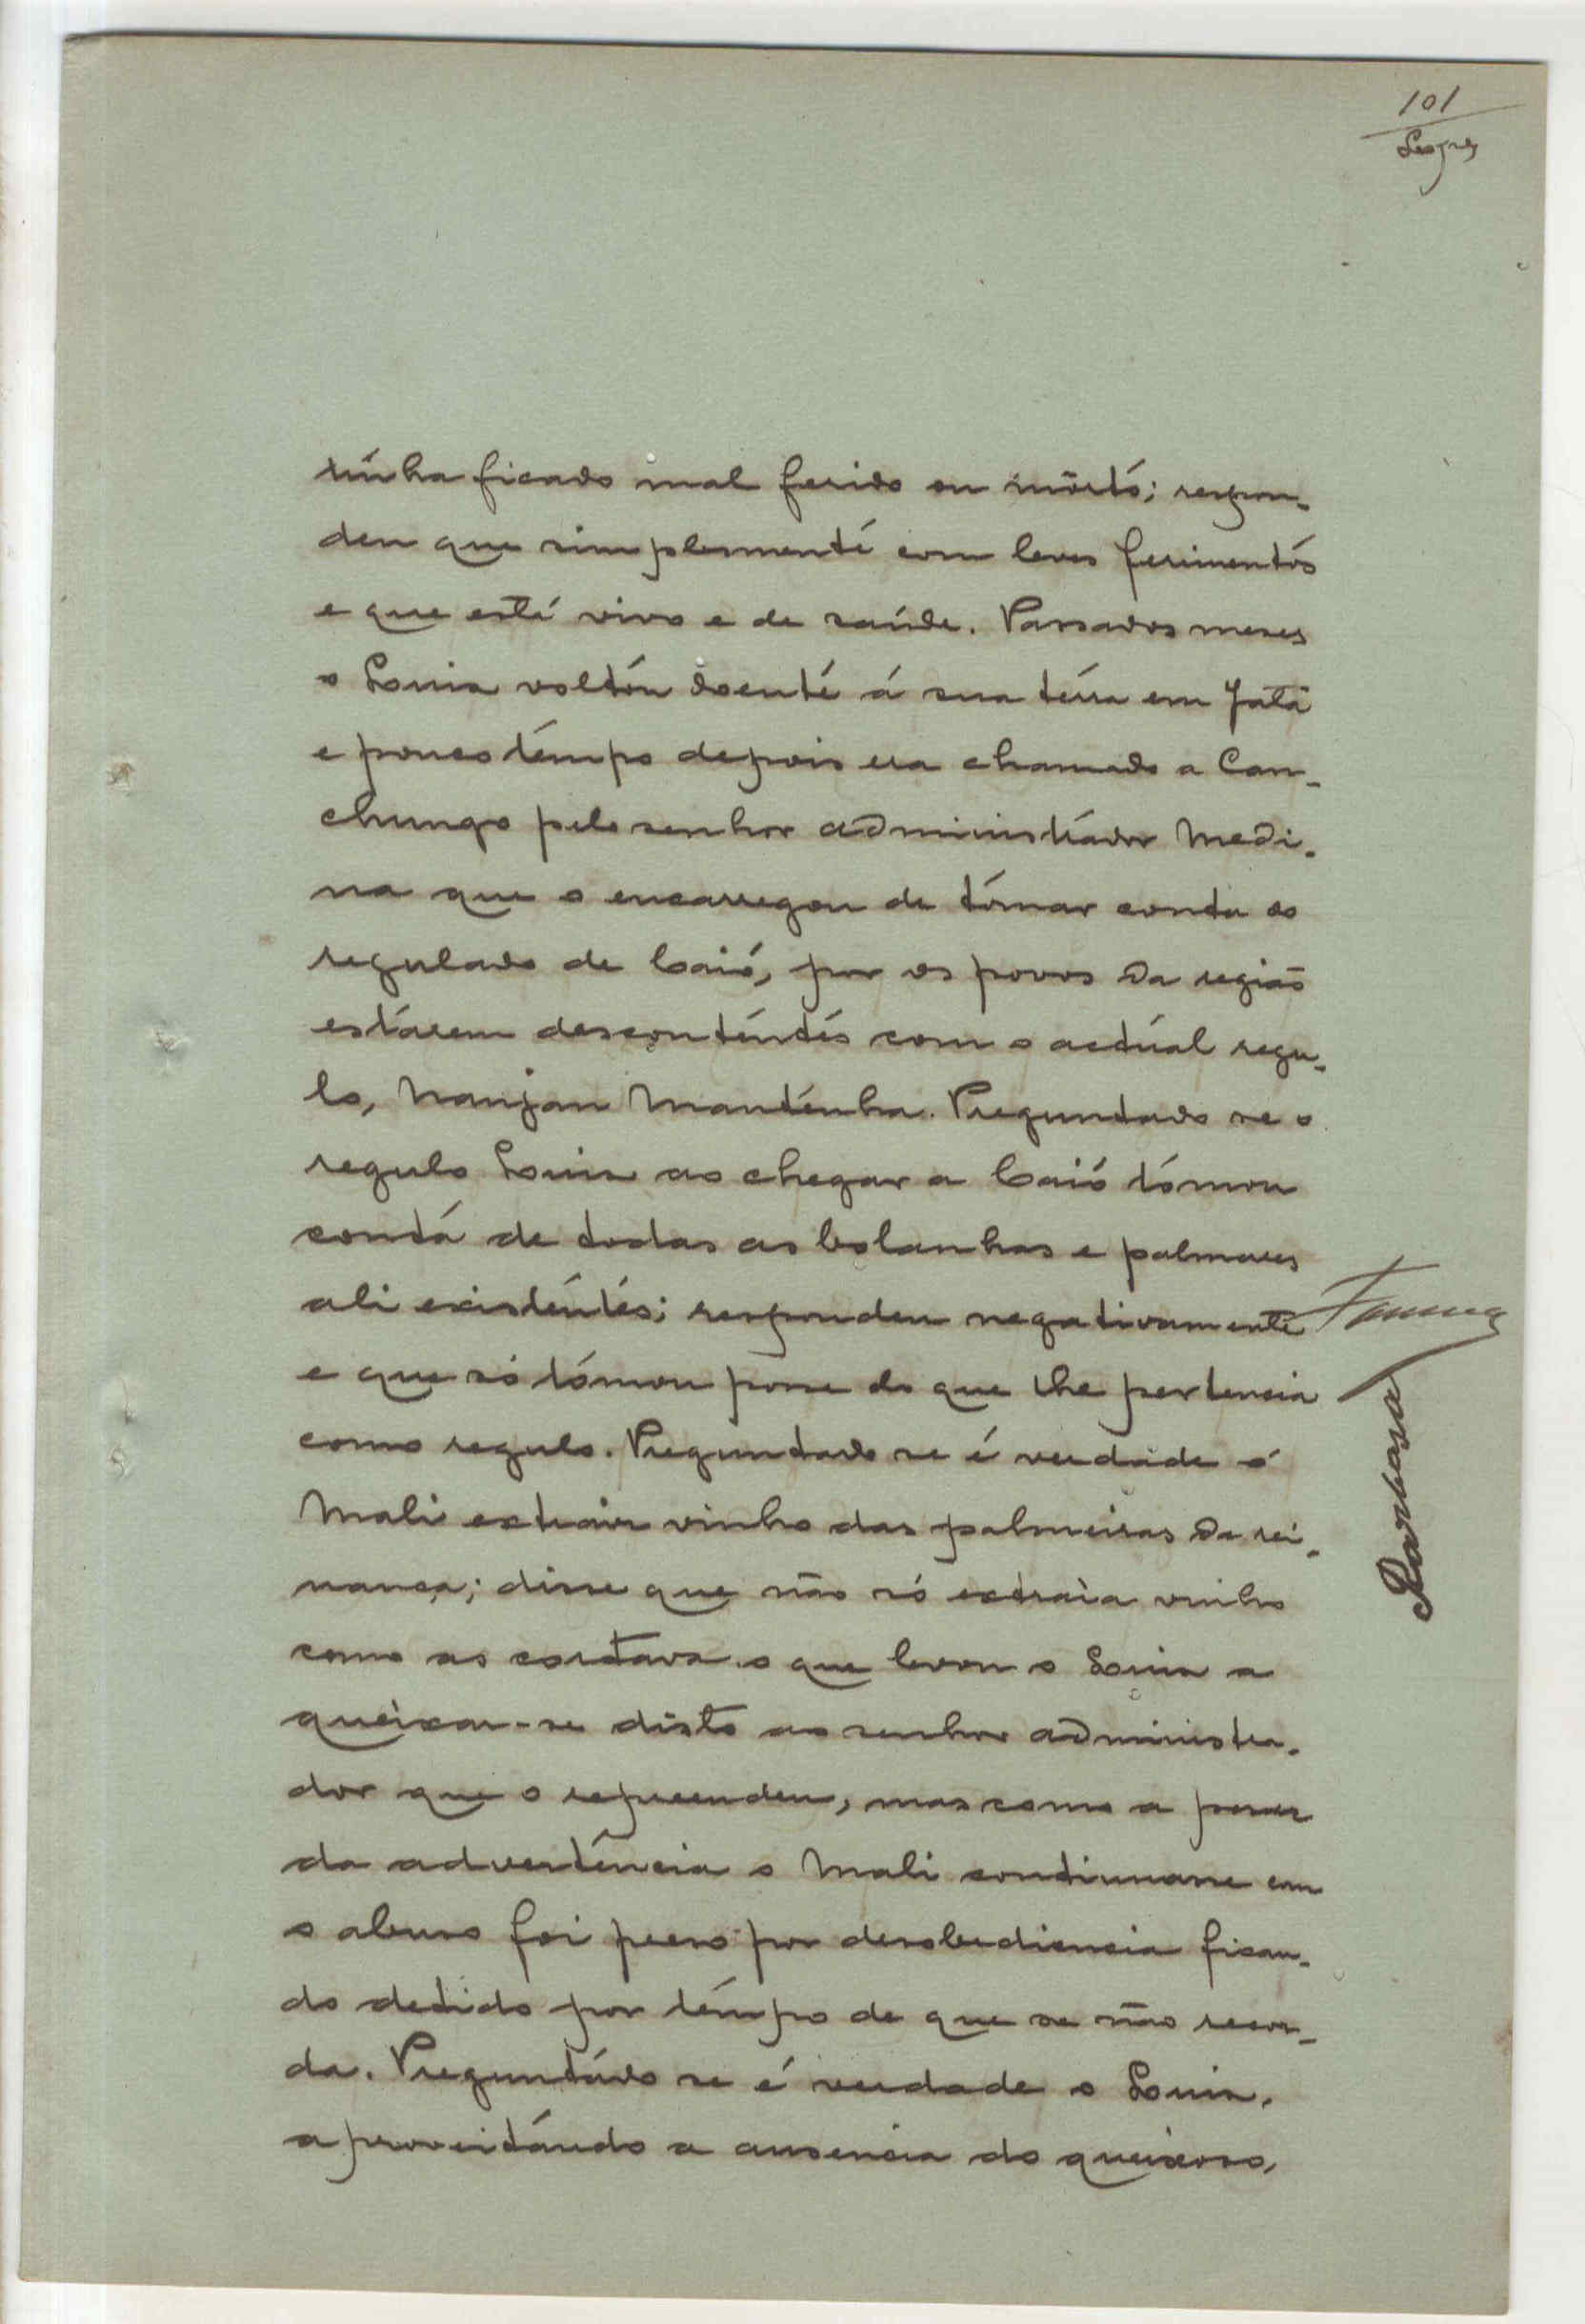 101
tinha ficado mal ferido ou morto; respon-
deu que simplesmente com leves ferimentos
e que está vivo e de saúde. Passados meses
o Louis voltou doente á sua terra em Jatá
e pouco tempo depois era chamado a Can-
chungo pelo senhor administrador Medi-
na que o encarregou de tomar conta do
regulado de Caió, por os povos da região
estarem descontentes com o actual regu-
lo, Nanjan Mantenha. Preguntado se o
regulo Louis ao chegar a Caió tomou
conta de todas as bolanhas e palmares
ali existentes; respondeu negativamente
e que só tomou posse do que lhe pertencia
como regulo. Preguntado se é verdade o
Mali extrair vinho das palmeiras da rei-
nança; disse que não só extraia vinho
como as cortava o que levou o Louis a
queixar-se disto ao senhor administra-
dor que o repreendeu, mas como a pesar
da advertência o Mali continuasse com
o abuso foi preso por desobediencia fican-
do detido por tempo de que se não recor-
da. Preguntado se é verdade o Louis,
aproveitando a ausencia do queixoso,
Barbosa